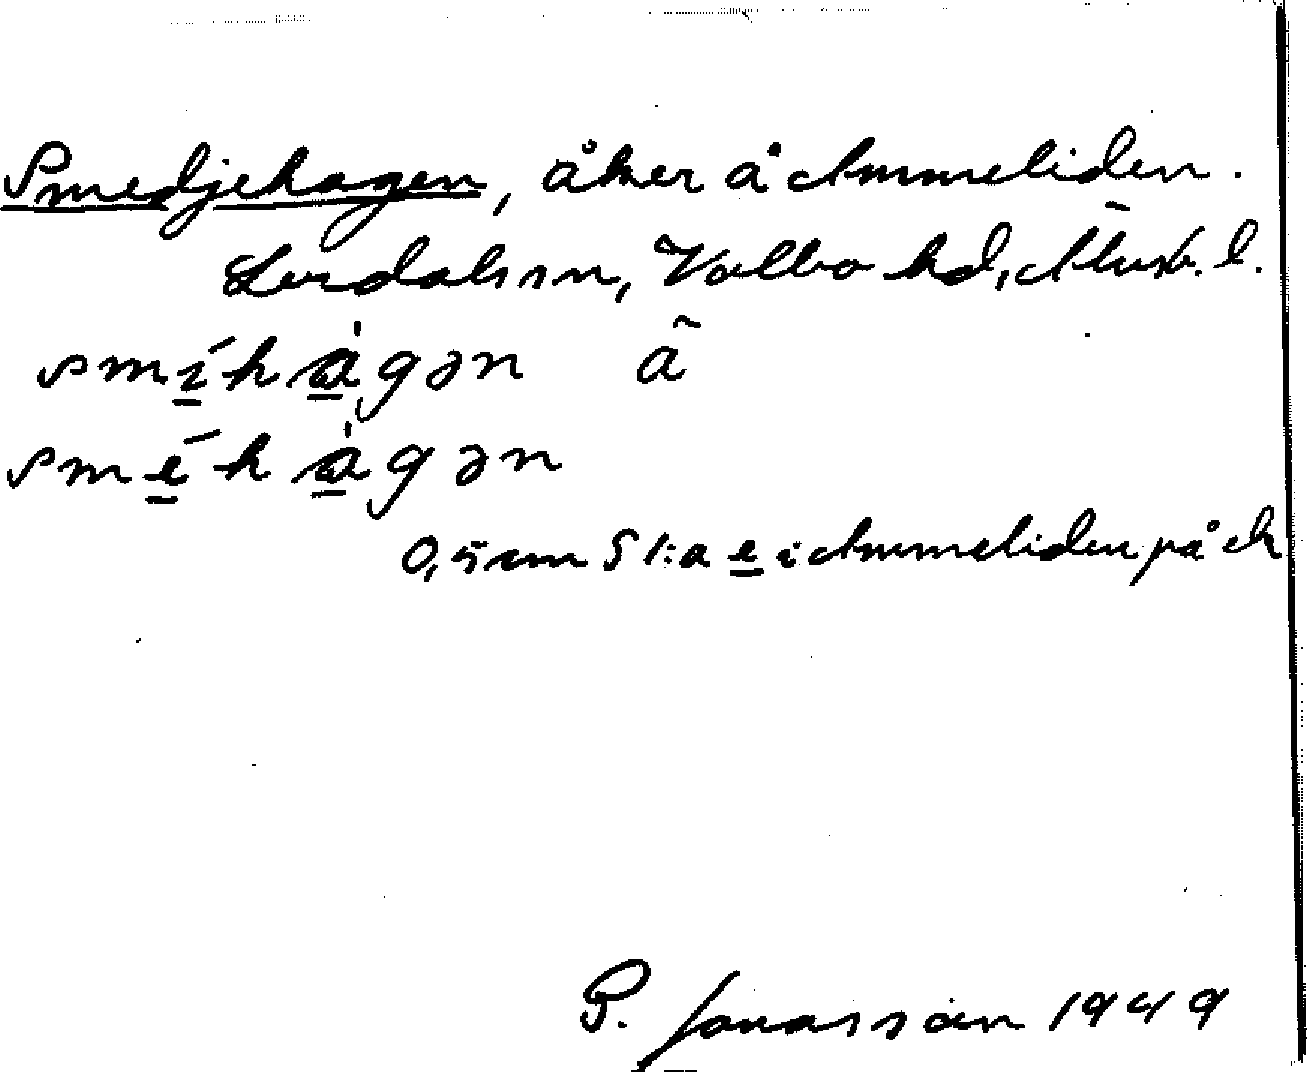 Smedjehagen, åker å Ammeliden.
Lerdals sn, Valbo hd, Älvsb. l.
smíhàgən ã
sméhàgən
0,5 cm S 1:a e i Ammeliden på ek
P. Jonasson 1949